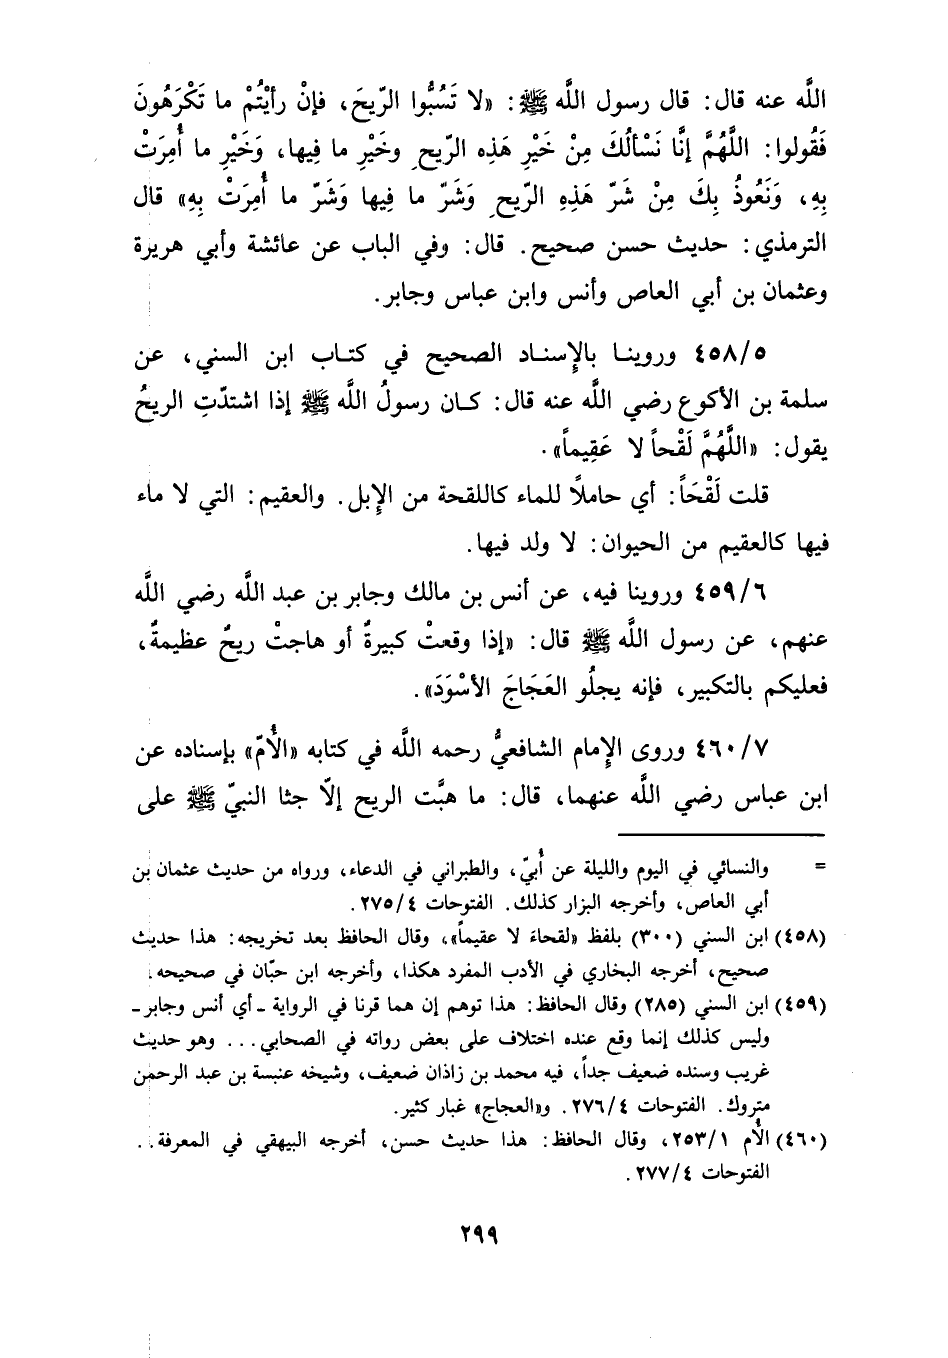 اللَّه عنه قال: قال رسول اللَّه ﷺ: «لا تَسُبُّوا الرّيحَ، فإنْ رأيْتُمْ ما تَكْرَهُونَ
فَقُولوا: اللَّهُمَّ إنَّا نَسْألُكَ مِنْ خَيْرِ هَذِه الرّيحِ وخَيْرِ ما فِيها، وَخَيْرِ ما أُمِرَتْ
بِهِ، وَنَعُوذُ بِكَ مِنْ شَرّ هَذِهِ الرّيحِ وَشَرّ ما فِيها وَشَرّ ما أُمِرَتْ بِهِ» قال
الترمذي: حديث حسن صحيح. قال: وفي الباب عن عائشة وأبي هريرة
وعثمان بن أبي العاص وأنس وابن عباس وجابر.
٤٥٨/٥ وروينا بالإسناد الصحيح في كتاب ابن السني، عن
سلمة بن الأكوع رضي اللَّه عنه قال: كان رسولُ اللَّه ﷺ إذا اشتدّتِ الريحُ
يقول: «اللَّهُمَّ لَقْحاً لا عَقِيماً».
قلت لَقْحَاً: أي حاملاً للماء كاللقحة من الإِبل. والعقيم: التي لا ماء
فيها كالعقيم من الحيوان: لا ولد فيها.
٤٥٩/٦ وروينا فيه، عن أنس بن مالك وجابر بن عبد اللَّه رضي اللَّه
عنهم، عن رسول اللَّه ﷺ قال: «إذا وقعتْ كبيرةٌ أو هاجتْ ريحٌ عظيمةٌ،
فعليكم بالتكبير، فإنه يجلُو العَجَاجَ الأسْوَدَ».
٤٦٠/٧ وروى الإِمام الشافعيُّ رحمه اللَّه في كتابه «الأُمّ» بإسناده عن
ابن عباس رضي اللَّه عنهما، قال: ما هبَّت الريح إلّا جثا النبيّ ﷺ على
= والنسائي في اليوم والليلة عن أُبيّ، والطبراني في الدعاء، ورواه من حديث عثمان بن
أبي العاص، وأخرجه البزار كذلك. الفتوحات ٢٧٥/٤.
(٤٥٨) ابن السني (٣٠٠) بلفظ «لقحاءَ لا عقيماً»، وقال الحافظ بعد تخريجه: هذا حديث
صحيح، أخرجه البخاري في الأدب المفرد هكذا، وأخرجه ابن حبّان في صحيحه.
(٤٥٩) ابن السني (٢٨٥) وقال الحافظ: هذا توهم إن هما قرنا في الرواية ـ أي أنس وجابر ـ
وليس كذلك إنما وقع عنده اختلاف على بعض رواته في الصحابي... وهو حديث
غريب وسنده ضعيف جداً، فيه محمد بن زاذان ضعيف، وشيخه عنبسة بن عبد الرحمن
متروك. الفتوحات ٢٧٦/٤. و«العجاج» غبار كثير.
(٤٦٠) الأُم ٢٥٣/١، وقال الحافظ: هذا حديث حسن، أخرجه البيهقي في المعرفة..
الفتوحات ٢٧٧/٤.
٢٩٩